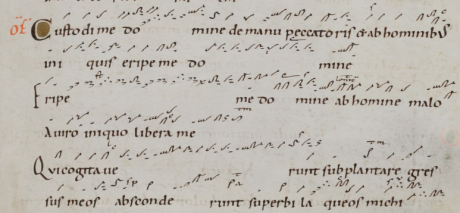 OF Custodi me do mine de manu peccatoris & ab hominibus
ini quis eripe me do mine
Eripe me do mine ab homine malo
A viro iniquo libera me
Qui cogitave runt subplantare gres
sus meos absconde runt superbi la queos michi